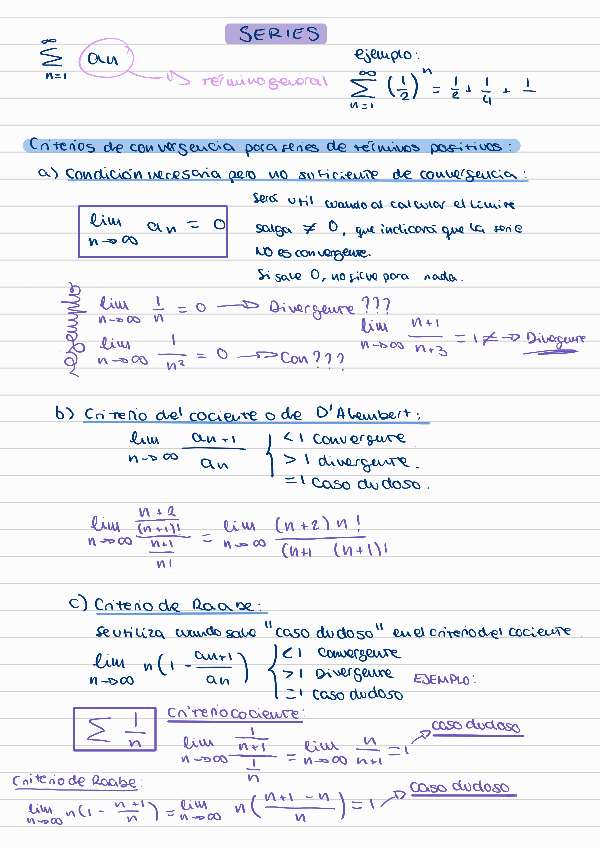 SERIES
∞ Σ n=1 an → término general
ejemplo:
∞ Σ n=1 (1/2)^n = 1/2 + 1/4 + 1
Criterios de convergencia para series de términos positivos:
a) Condición necesaria pero no suficiente de convergencia:
lim n→∞ an = 0
Será util cuando al calcular el límite
salga ≠ 0, que indicará que la serie
NO es convergente.
Si sale 0, no sirve para nada.
ejemplos
lim n→∞ 1/n = 0 → Divergente ???
lim n→∞ 1/n² = 0 → Con???
lim n→∞ n+1/n+3 = 1 ≠ → Divergente
b) Criterio del cociente o de D'Alembert:
lim n→∞ an+1/an { <1 convergente
>1 divergente.
=1 caso dudoso.
lim n→∞ ((n+2)/(n+1)!)/((n+1)/n!) = lim n→∞ (n+2) n!/(n+1 (n+1)!
c) Criterio de Raabe:
se utiliza cuando sale "caso dudoso" en el criterio del cociente
lim n→∞ n(1 - an+1/an) { <1 Convergente
>1 Divergente
=1 caso dudoso
EJEMPLO:
Σ 1/n
Criterio cociente:
lim n→∞ (1/(n+1))/(1/n) = lim n→∞ n/(n+1) = 1 → caso dudoso
Criterio de Raabe:
lim n→∞ n(1 - (n+1)/n) = lim n→∞ n((n+1-n)/n) = 1 → caso dudoso